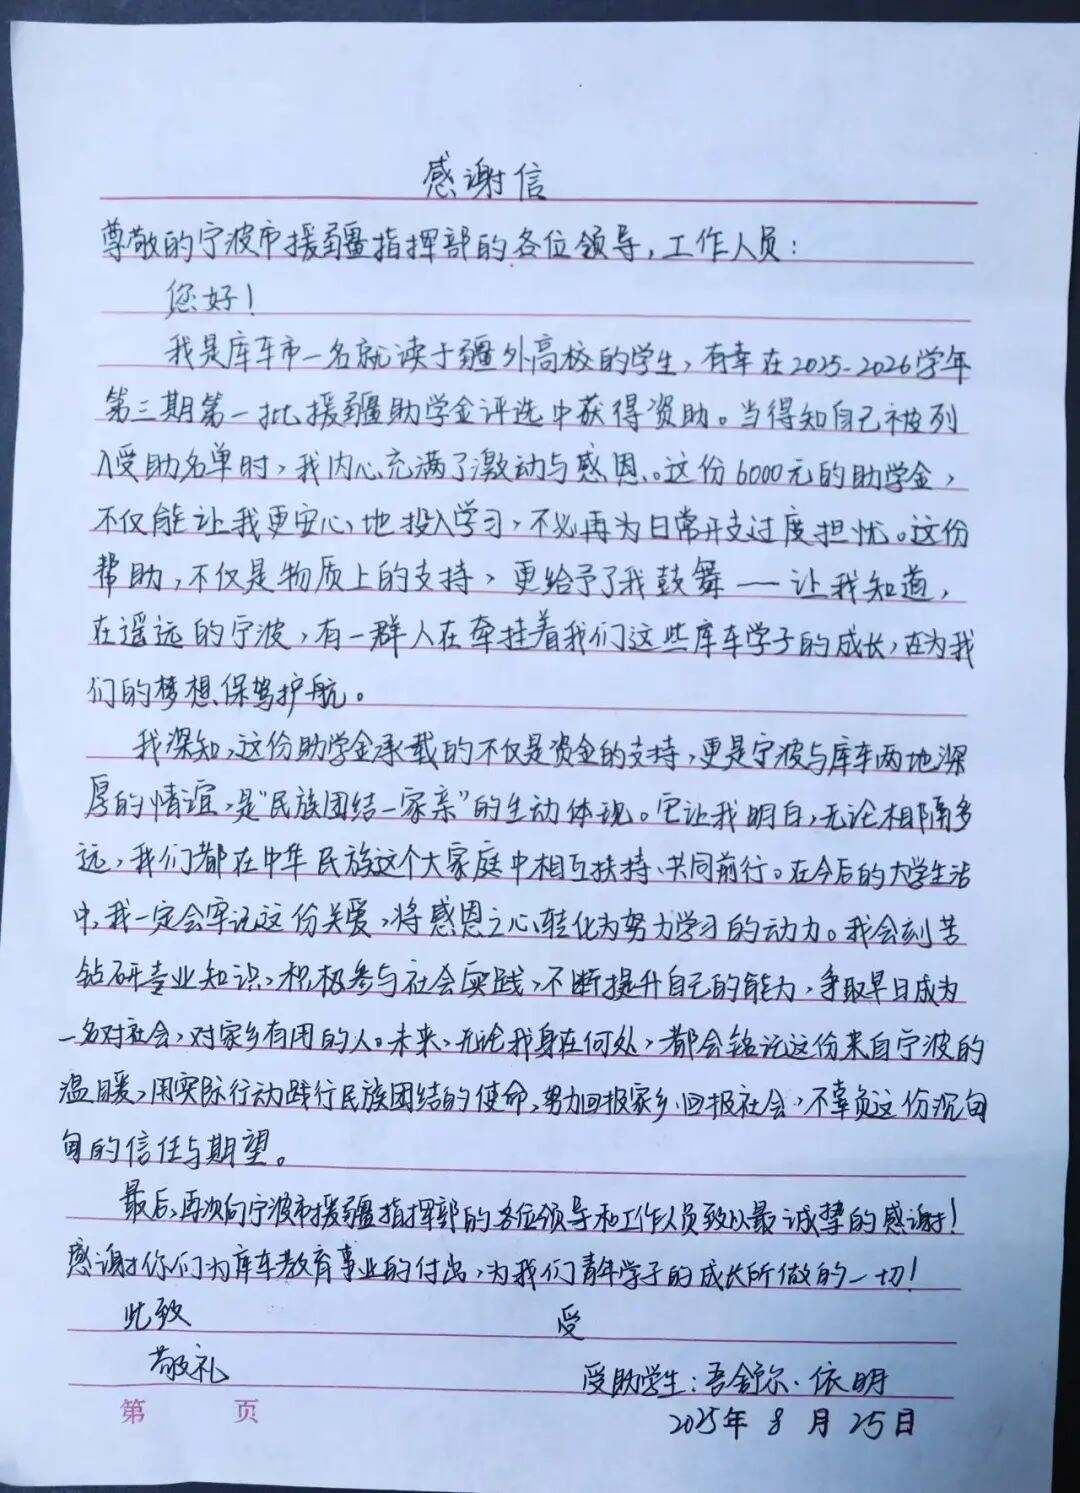 感谢信
尊敬的宁波市援疆指挥部的各位领导，工作人员：
您好！
我是库车市一名就读于疆外高校的学生，有幸在2025-2026学年
第三期第一批援疆助学金评选中获得资助。当得知自己被列
入受助名单时，我内心充满了激动与感恩。这份6000元的助学金，
不仅能让我更安心地投入学习，不必再为日常开支过度担忧。这份
帮助，不仅是物质上的支持，更给予了我鼓舞——让我知道，
在遥远的宁波，有一群人在牵挂着我们这些库车学子的成长，在为我
们的梦想保驾护航。
我深知，这份助学金承载的不仅是资金的支持，更是宁波与库车两地深
厚的情谊，是“民族团结一家亲”的生动体现。它让我明白，无论相隔多
远，我们都在中华民族这个大家庭中相互扶持、共同前行。在今后的大学生活
中，我一定会牢记这份关爱，将感恩之心转化为努力学习的动力。我会刻苦
钻研专业知识，积极参与社会实践，不断提升自己的能力，争取早日成为
一名对社会，对家乡有用的人。未来，无论我身在何处，都会铭记这份来自宁波的
温暖，用实际行动践行民族团结的使命，努力回报家乡、回报社会，不辜负这份沉甸
甸的信任与期望。
最后，再次向宁波市援疆指挥部的各位领导和工作人员致以最诚挚的感谢！
感谢你们为库车教育事业的付出，为我们青年学子的成长所做的一切！
此致 受
敬礼
受助学生：吾舒尔·依明
第 页
2025年8月25日